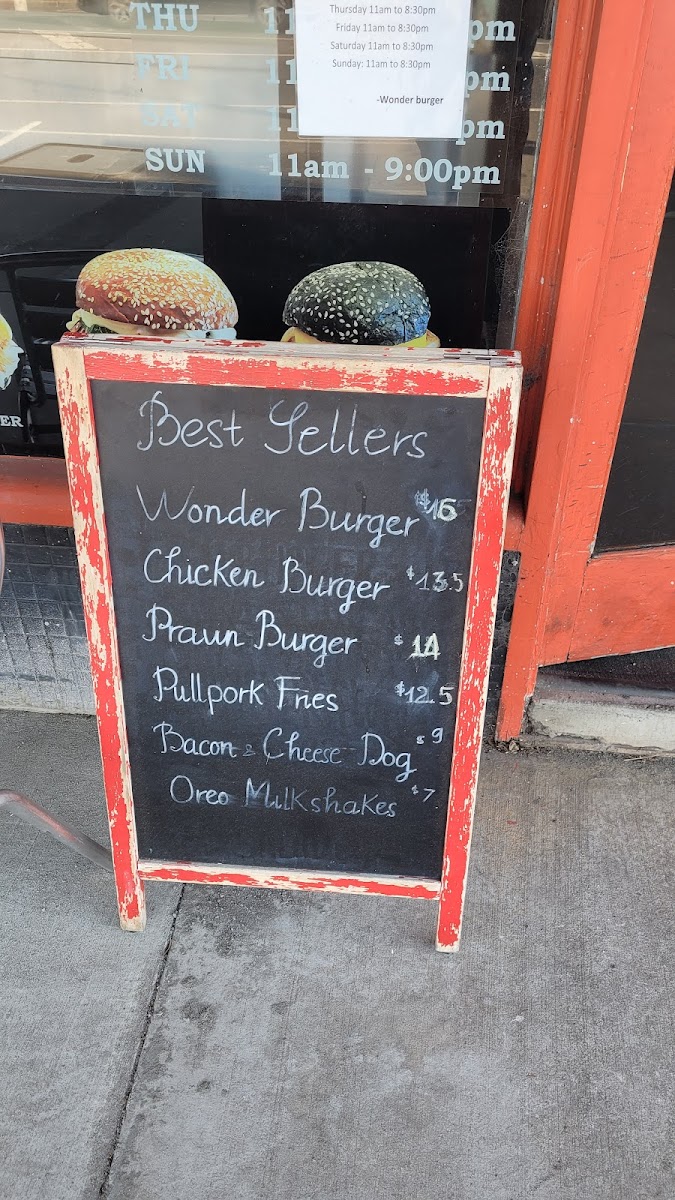 Thursday 11am to 8:30pm
Friday 11am to 8:30pm
Saturday 11am to 8:30pm
Sunday: 11am to 8:30pm
-Wonder burger
THU 11 pm
FRI 11 pm
SAT 11 pm
SUN 11am - 9:00pm
ER
Best Sellers
Wonder Burger $16
Chicken Burger $13.5
Prawn Burger $14
Pullpork Fries $12.5
Bacon & Cheese Dog $9
Oreo Milkshakes $7